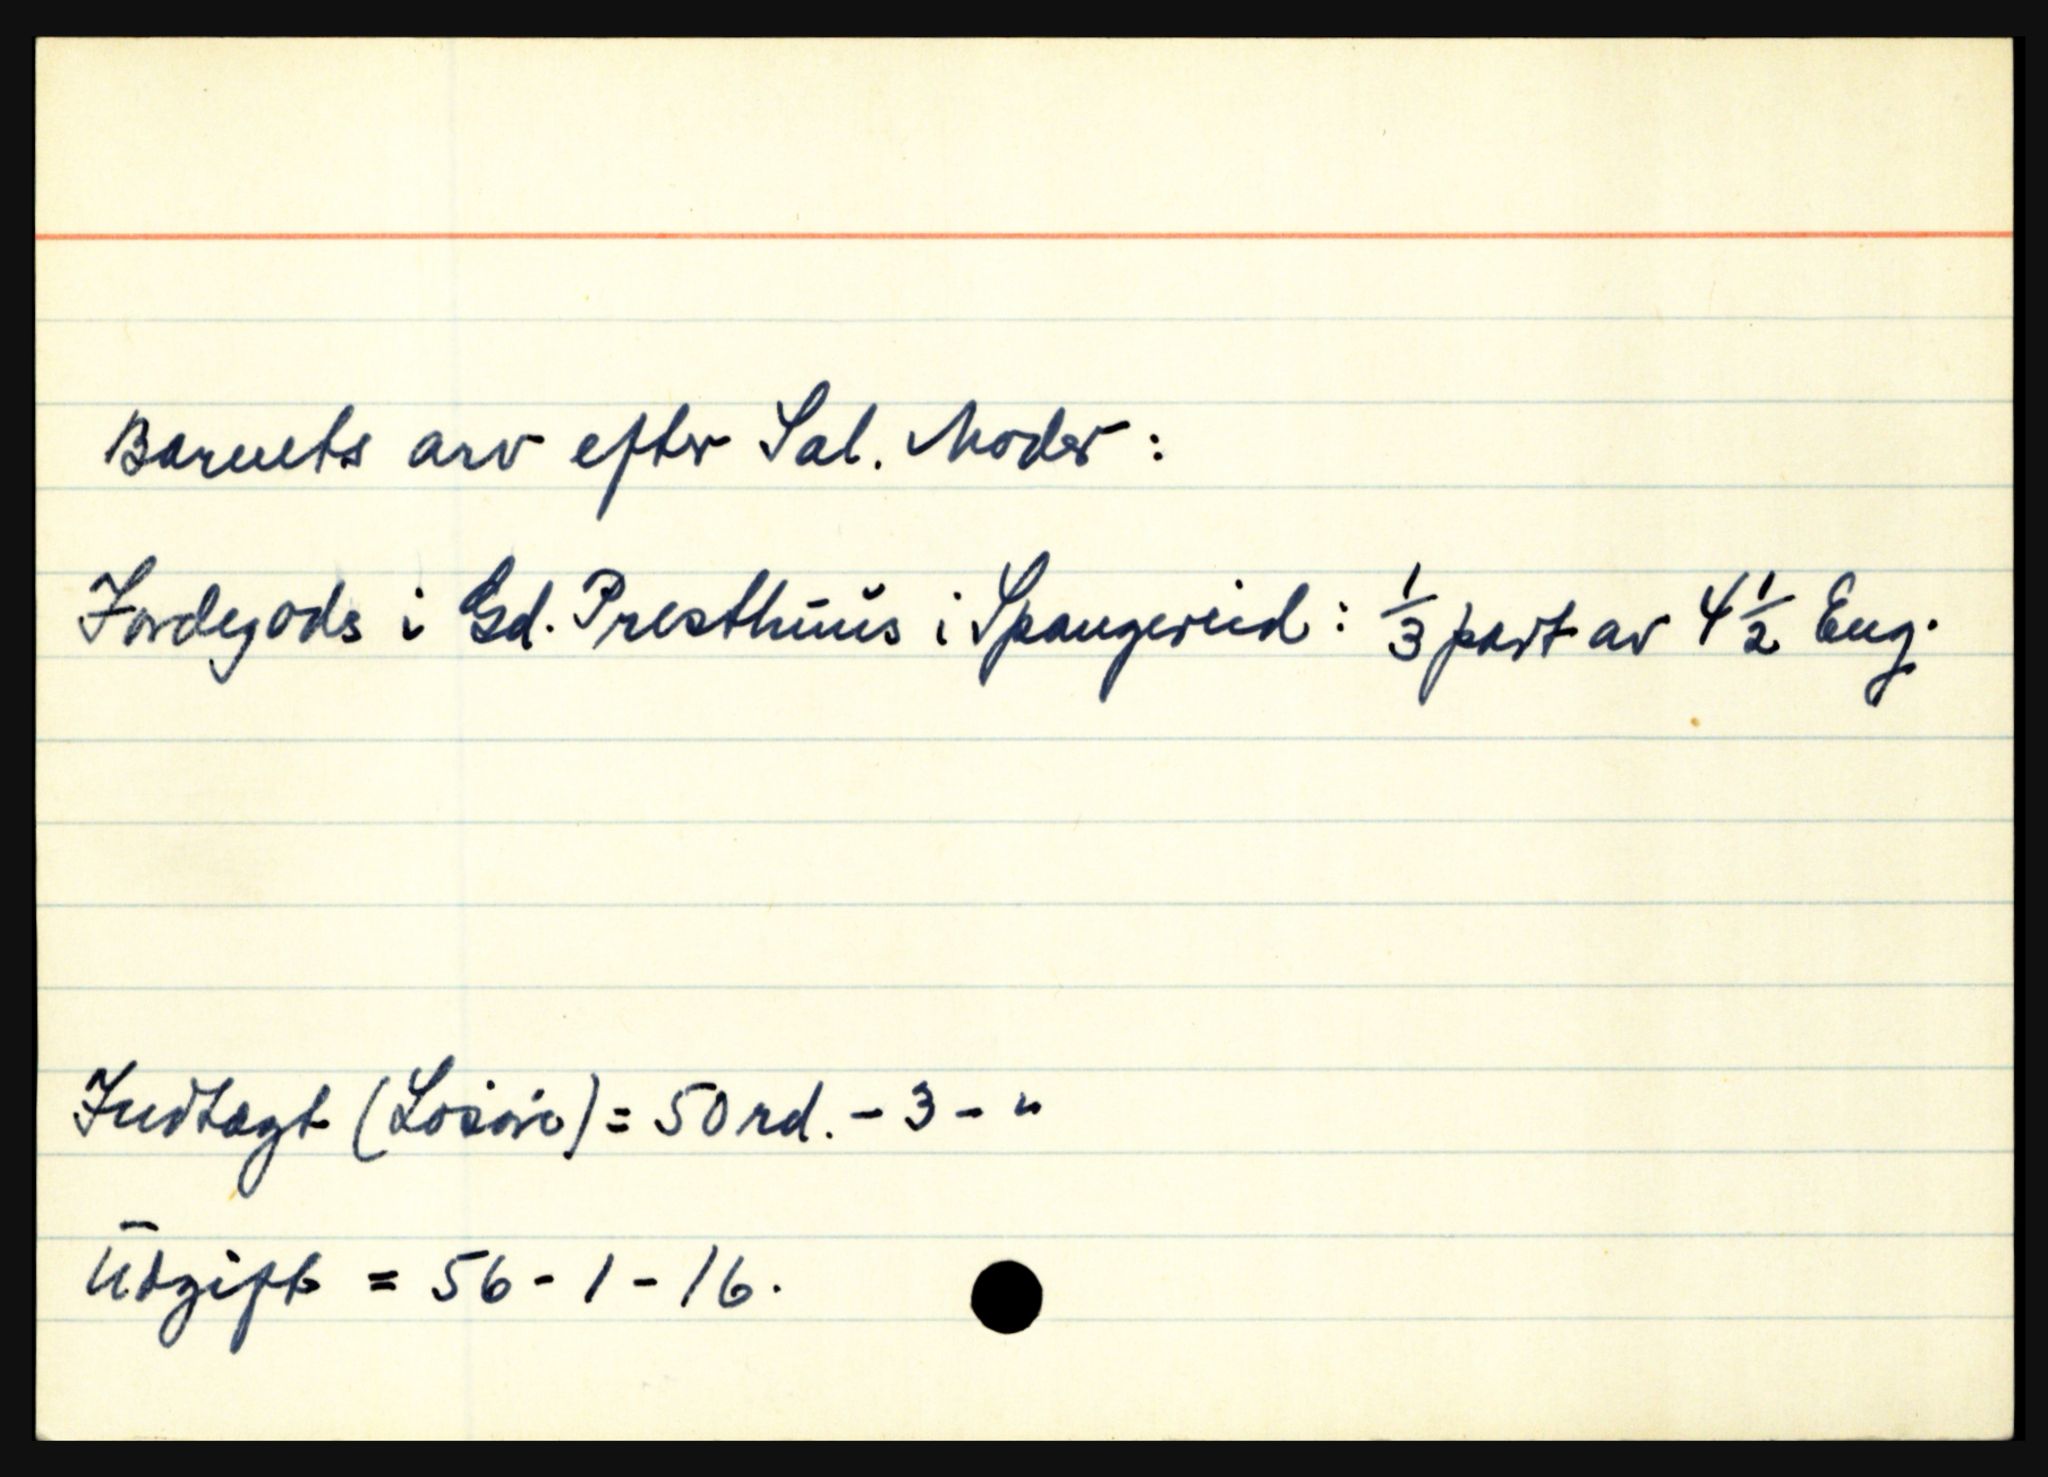 Barnets arv efter Sal. Moder:
Jordegods i Gd. Presthuus i Spangereid: 1/3 part av 4 1/2 Eng.
Indtægt (Losøre) = 50 rd. - 3 - "
Udgift = 56 - 1 - 16.